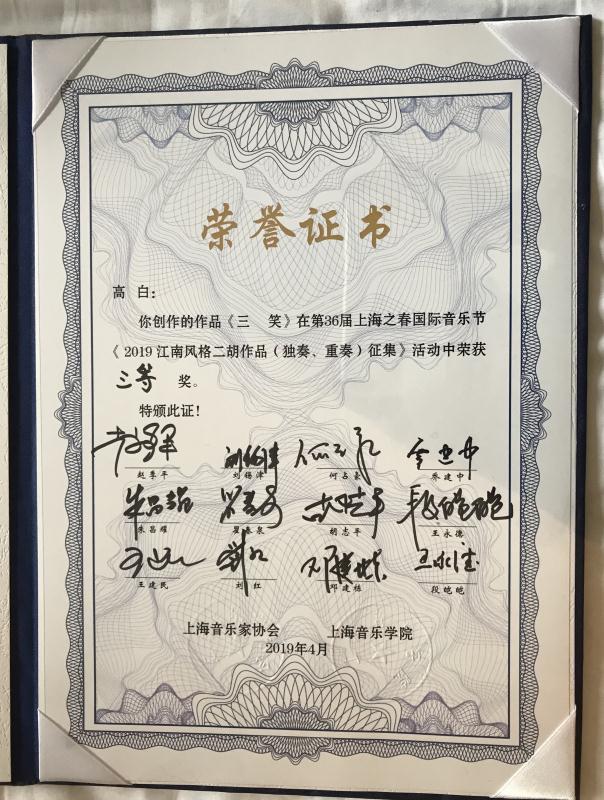 荣誉证书
高 白：
你创作的作品《三 笑》在第36届上海之春国际音乐节
《2019江南风格二胡作品（独奏、重奏）征集》活动中荣获
三等 奖。
特颁此证！
赵季平 刘锡津 何占豪 乔建中
朱昌耀 瞿春泉 胡志平 王永德
王建民 刘红 邓建栋 段皑皑
上海音乐家协会 上海音乐学院
2019年4月